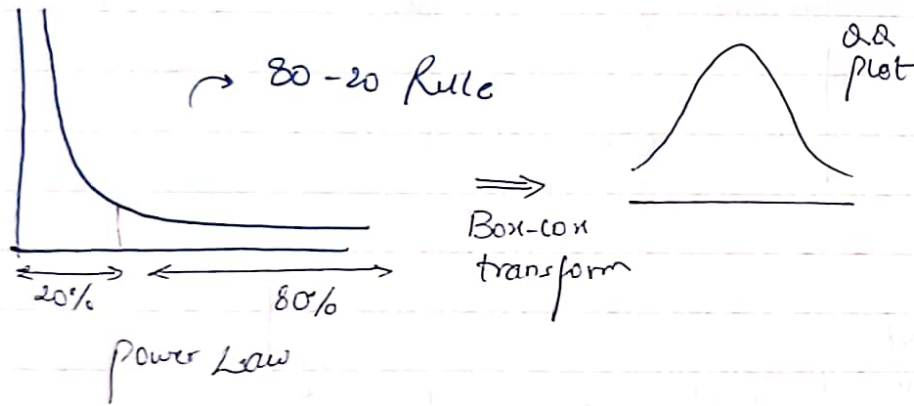 80-20 Rule
QQ
plot
Box-cox
transform
20%
80%
Power Law